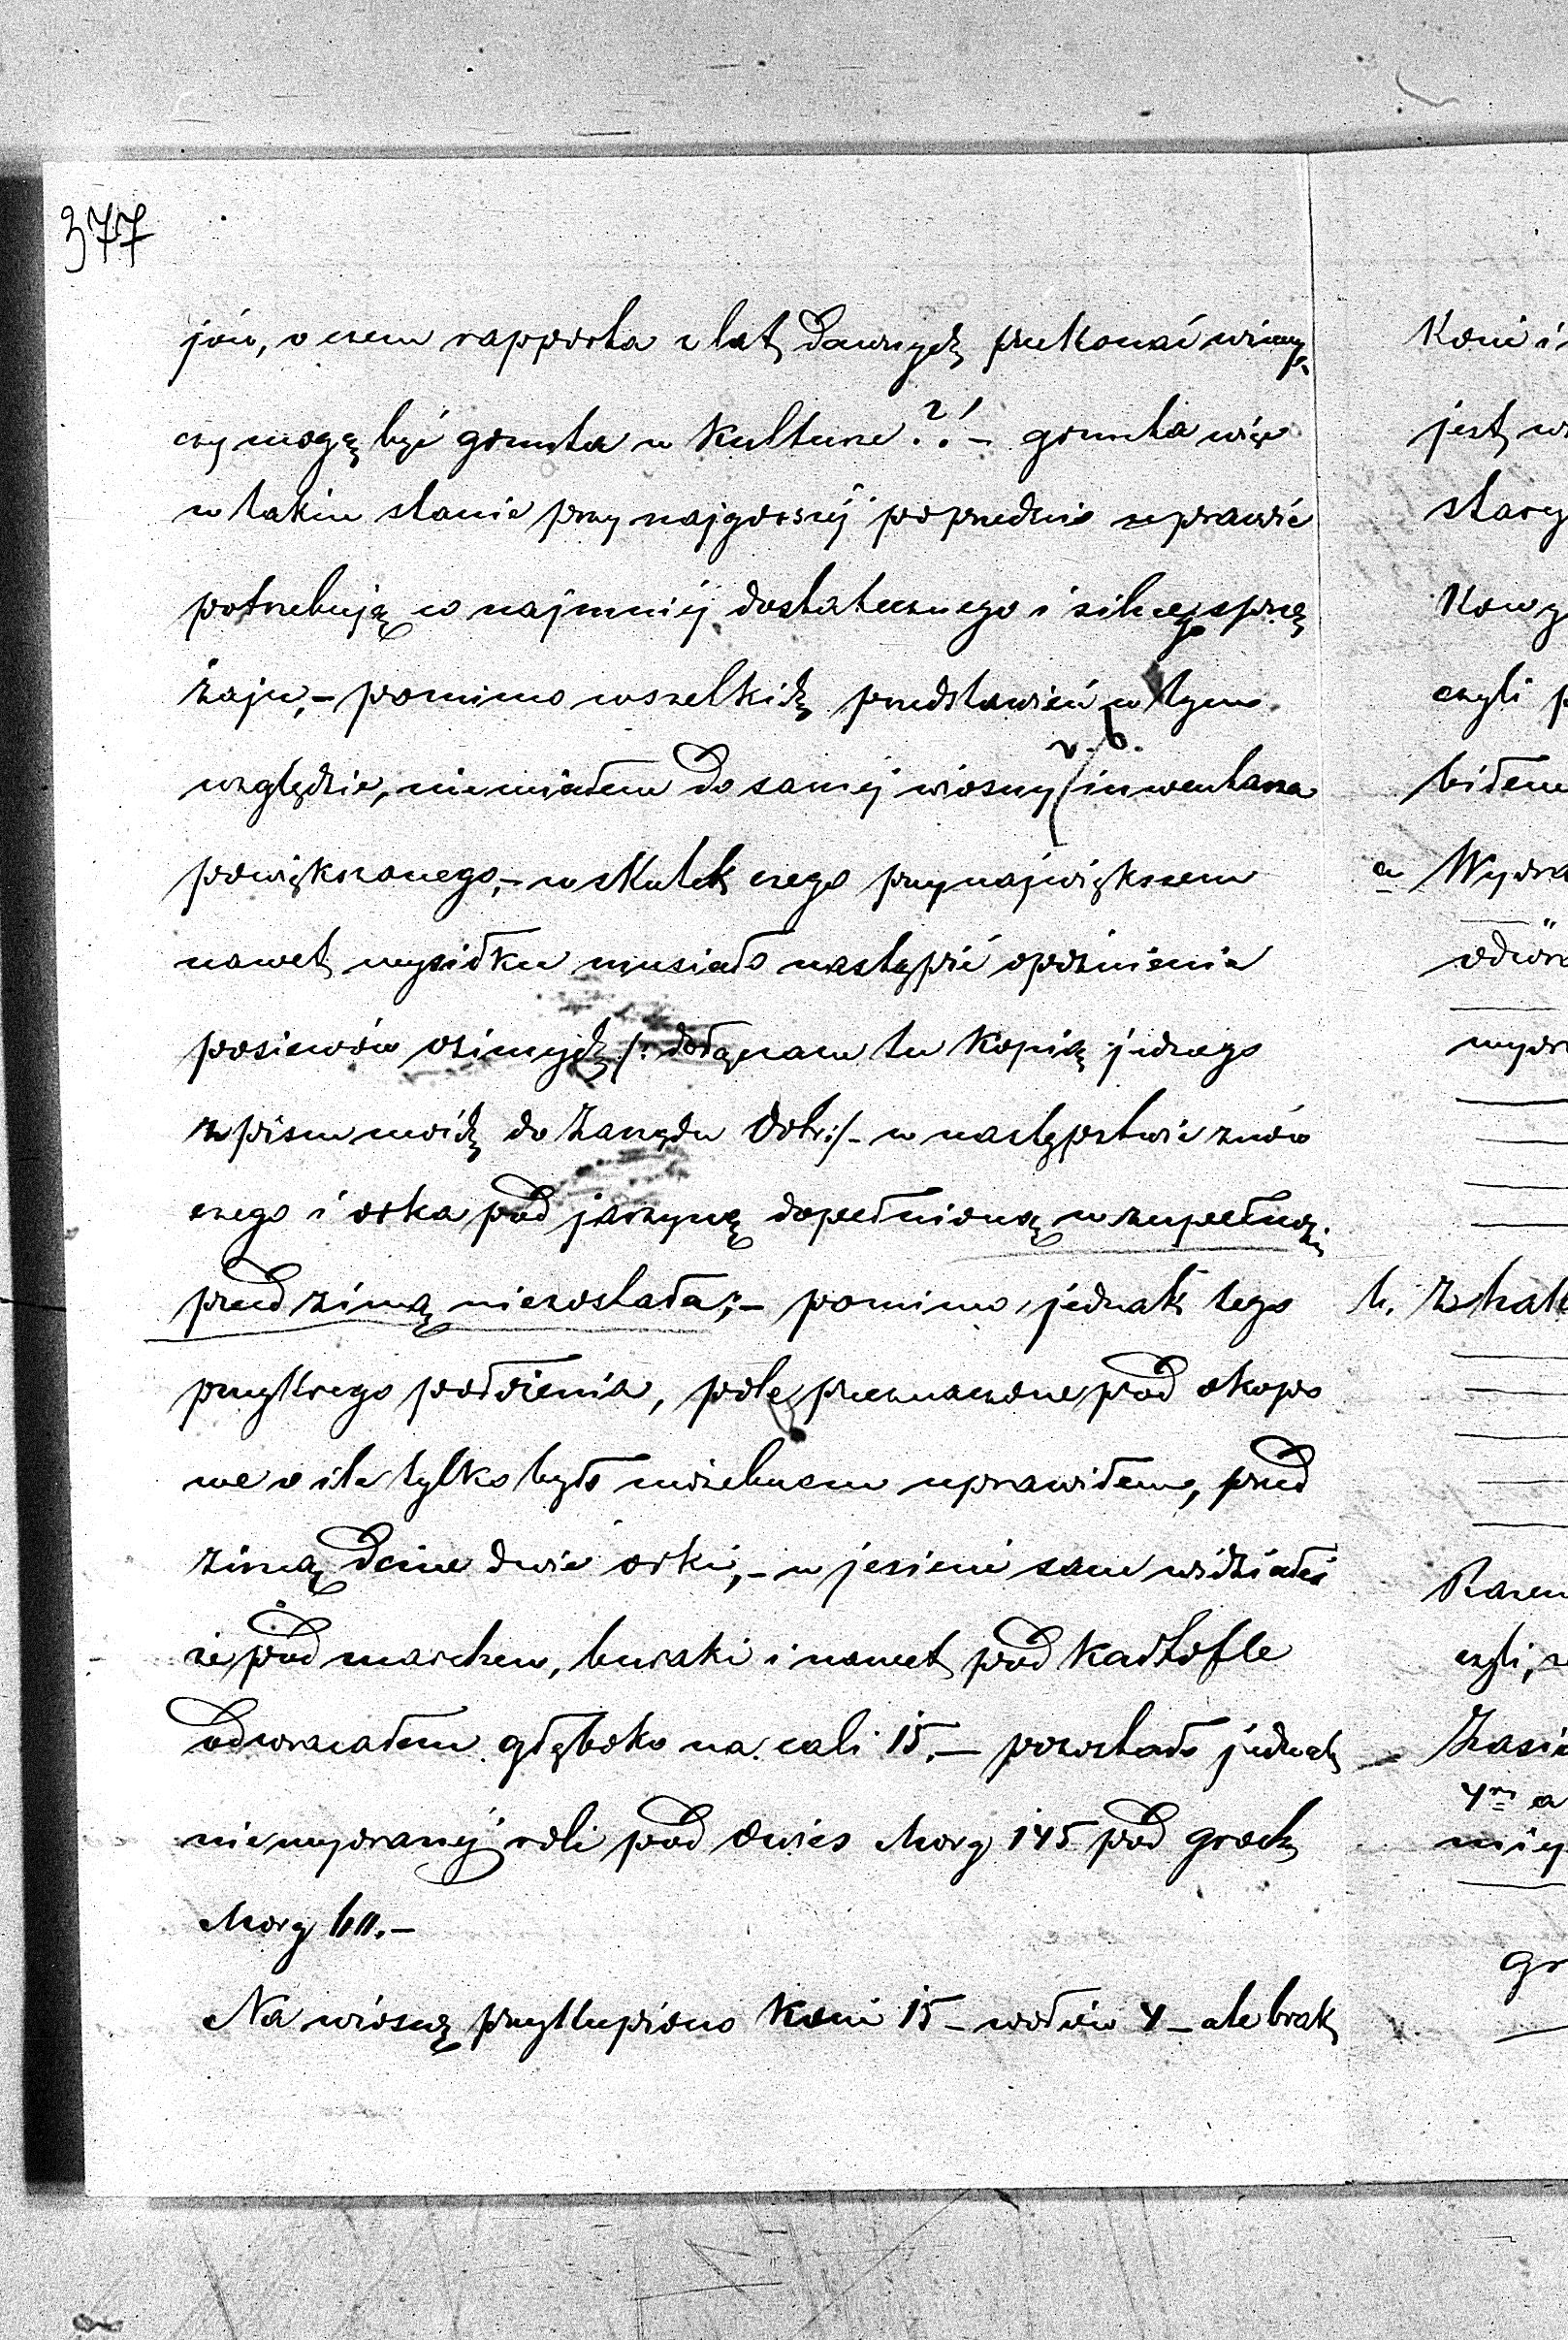 377
jów, o czem rapporta z lat dawnych przekonać winny,
czy mogą być grunta w kulturze?! – grunta więc
w takim stanie przy najgorszéj poprzednio uprawie
potrzebują co najmniéj dostatecznego i silnego sprzę
żaju, – pomimo wszelkich przedstawień w tym
względzie, niemiałem do saméj wiosny inwentarza
v. b.
powiększonego, – w skutek czego przy największem
nawet wysiłku musiało nastąpić opóźnienie
posiewów ozimych /: dołączam tu kopią jednego
z pism moich do Zarządu Dóbr :/ – w następstwie znów
czego i orka pod jarzynę dopełnioną w zupełności
przed zimą niezostała; – pomimo jednak tego
przykrego położenia, pole przeznaczone pod okopo
we o ile tylko było możebnem uprawiłem, przed
zimą dane dwie orki, – w jesieni sam widziałeś
że pod marchew, buraki i nawet pod kartofle
odwracałem głęboko na cali 15. – pozostało jednak
niewyoranéj roli pod owies Morg 145 pod groch
Morg 60. –
Na wiosnę przykupiono koni 15 – wołów 4 – ale brak
Koni i
jest
stary
Nowy
czyli
biłem
a Wyora
odwra
wyor
b. Z
Razem
czyli,
Zasia
4m a
gr